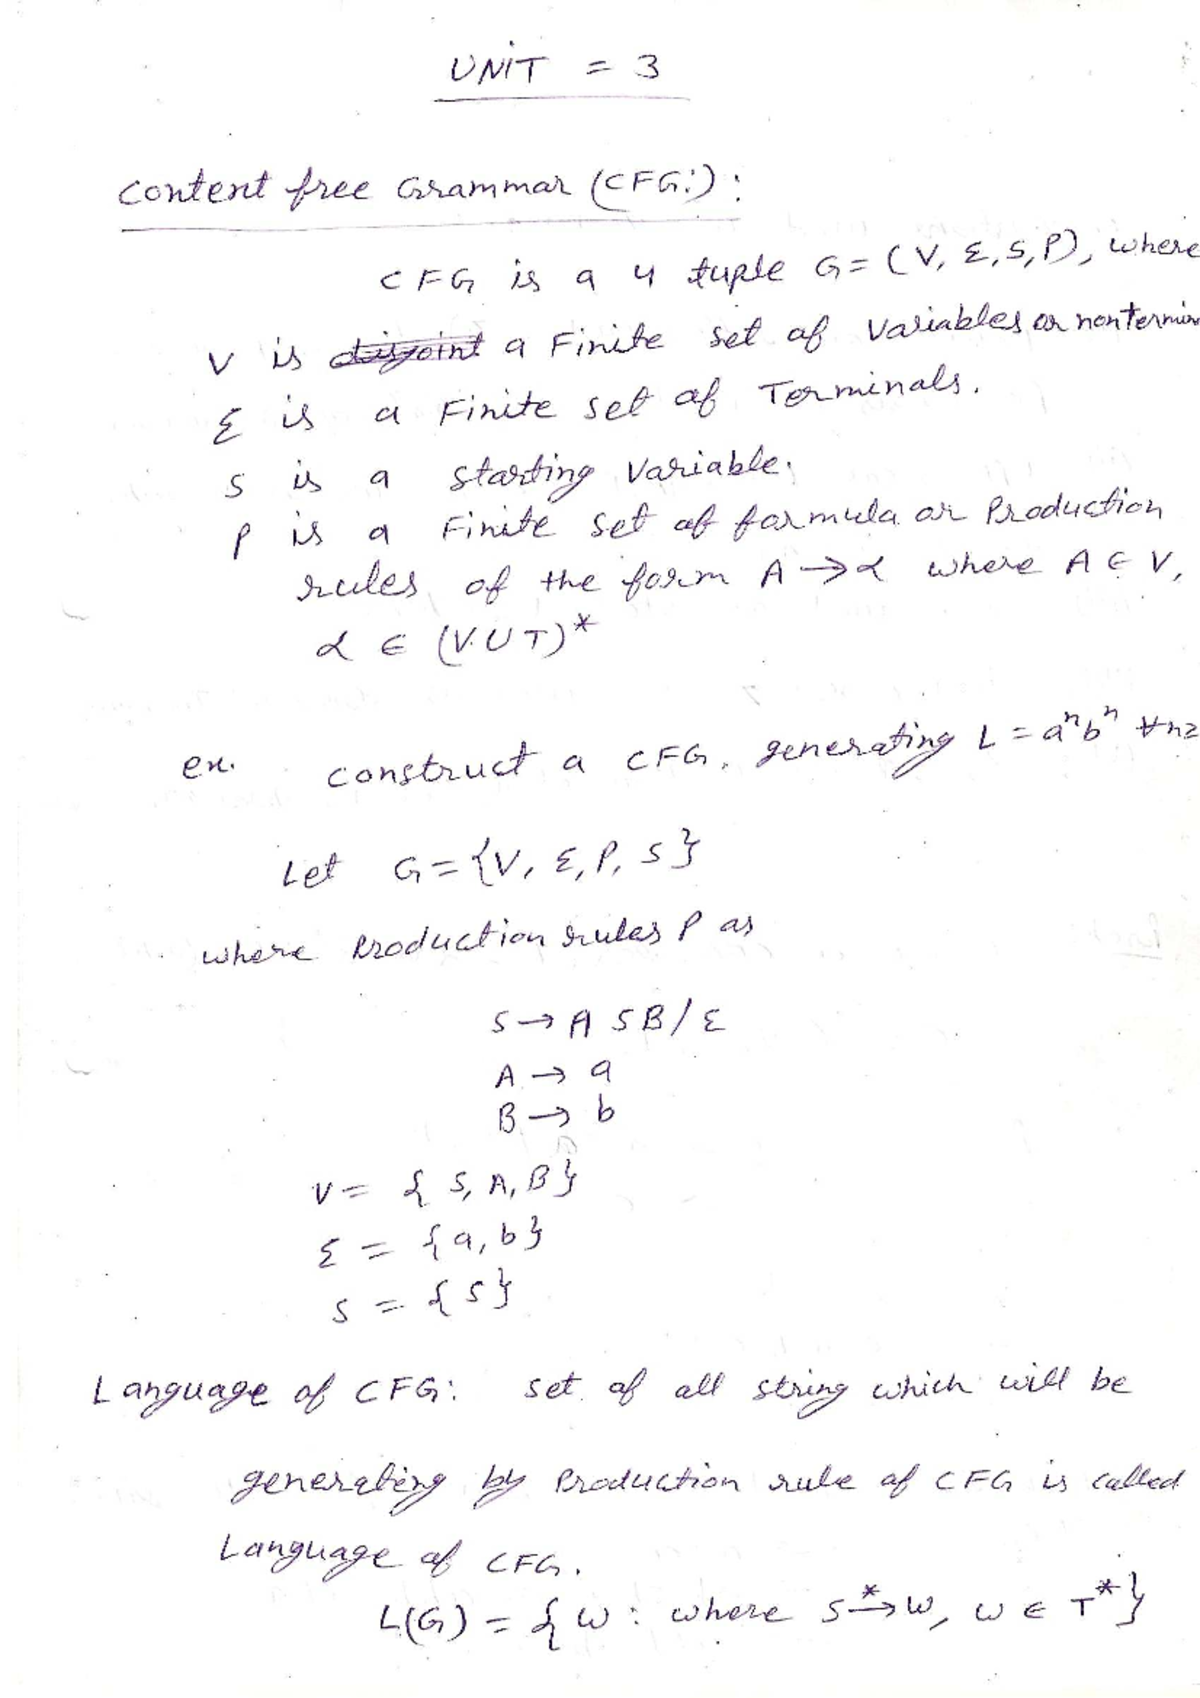 UNIT = 3
Content free Grammar (CFG:) :
CFG is a 4 tuple G = (V, Σ, S, P), where
V is disjoint a Finite set of Variables or nontermin
Σ is a Finite set of Terminals.
S is a starting Variable.
P is a Finite set of formula or Production
rules of the form A → α where A ∈ V,
α ∈ (V ∪ T)*
ex. construct a CFG, generating L = aⁿbⁿ ∀n≥
Let G = {V, Σ, P, S}
where Production rules P as
S → A S B / ε
A → a
B → b
V = { S, A, B}
Σ = {a, b}
S = {S}
Language of CFG: set of all string which will be
generating by Production rule of CFG is called
Language of CFG.
L(G) = { w : where S *→ w, w ∈ T*}